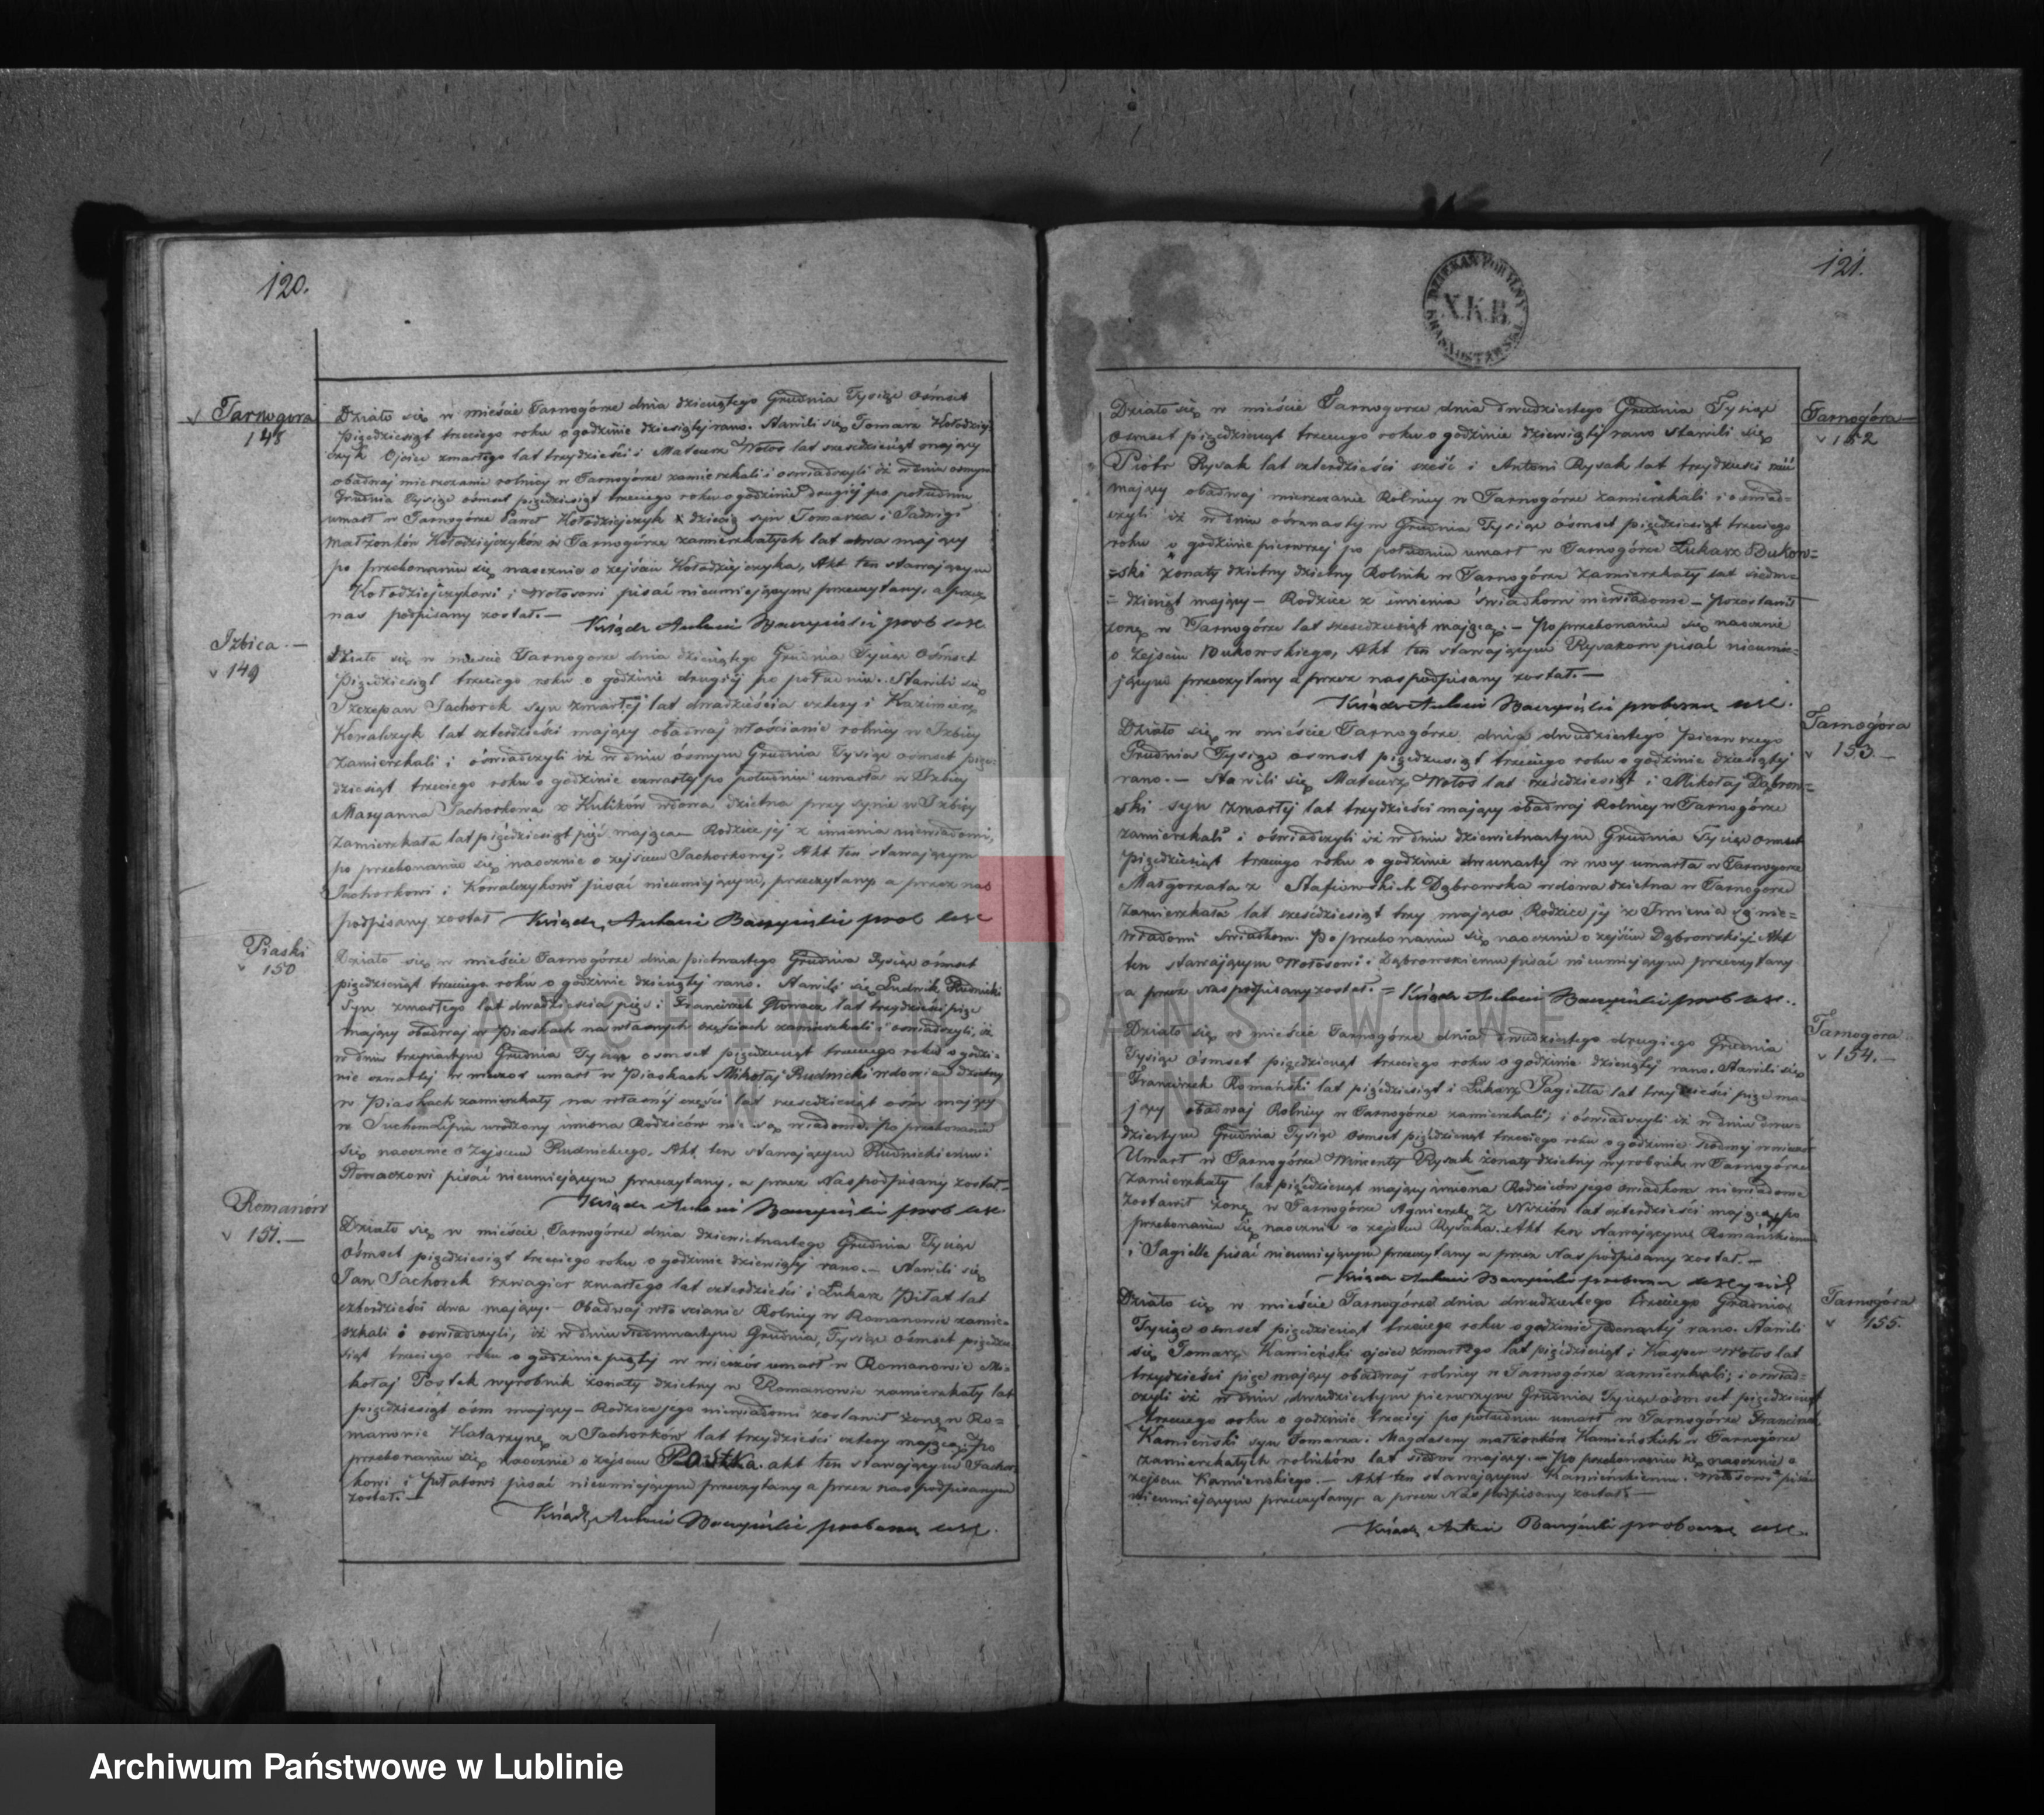 120.
Tarnogora
148
Działo się w mieście Tarnogórze dnia dziesiątego Grudnia Tysiąc ośmset
pięcdziesiąt trzeciego roku o godzinie dziesiątej rano. Stawili się Tomasz Kołodziej
czyk Ojciec zmarłego lat trzydzieści i Mateusz Wołos lat sześcdziesiąt mający
obadwaj mieszczanie rolnicy w Tarnogórze zamieszkali i oświadczyli iż w dniu osmym
Grudnia Tysiąc ośmset pięcdziesiąt trzeciego roku o godzinie drugiej po południu
umarł w Tarnogórze Paweł Kołodziejczyk dziecię syn Tomasza i Jadwigi
małżonków Kołodziejczyków w Tarnogórze zamieszkałych lat dwa mający
po przekonaniu się naocznie o zejściu Kołodziejczyka, Akt ten stawającym
Kołodziejczykowi i Wołosowi pisać nieumiejącym przeczytany, a przez
nas podpisany został. —
Ksiądz Antoni Baczyński prob usc
Izbica. —
v 149
Działo się w mieście Tarnogórze dnia dziesiątego Grudnia Tysiąc Ośmset
pięcdziesiąt trzeciego roku o godzinie drugiej po południu. Stawili się
Szczepan Jachorek syn zmarłej lat dwadzieścia cztery i Kazimierz
Kowalczyk lat czterdzieści mający obadwaj włościanie rolnicy w Izbicy
zamieszkali i oświadczyli iż w dniu ósmym Grudnia Tysiąc ośmset pięc
dziesiąt trzeciego roku o godzinie czwartej po południu umarła w Izbicy
Maryanna Jachorkowa z Kulików wdowa dzietna przy synie w Izbicy
zamieszkała lat pięcdziesiąt pięć mająca — Rodzice jej z imienia niewiadomi,
po przekonaniu się naocznie o zejściu Jachorkowej, Akt ten stawającym
Jachorkowi i Kowalczykowi pisać nieumiejącym, przeczytany a przez nas
podpisany został Ksiądz Antoni Baczyński prob usc
Piaski
v 150
Działo się w mieście Tarnogórze dnia piętnastego Grudnia Tysiąc ośmset
pięcdziesiąt trzeciego roku o godzinie dziesiątej rano. Stawili się Ludwik Rudnicki
Syn zmarłego lat dwadzieścia pięć i Franciszek Głowacz lat trzydzieści pięć
mający obadwaj w Piaskach na własnych częściach zamieszkali i oświadczyli, iż
w dniu trzynastym Grudnia Tysiąc osmset pięcdziesiąt trzeciego roku o godzi-
nie czwartej w wieczor umarł w Piaskach Mikołaj Rudnicki wdowiec dzietny
w Piaskach zamieszkały na własnej części lat sześcdziesiąt ośm mający
w Suchem Lipiu urodzony imiona Rodziców nie są wiadome. Po przekonaniu
się naocznie o Zejściu Rudnickiego, Akt ten stawającym Rudnickiemu i
Głowaczowi pisać nieumiejącym przeczytany, a przez Nas podpisany został —
Ksiądz Antoni Baczyński prob usc
Romanów
v 151. —
Działo się w mieście Tarnogórze dnia dziewietnastego Grudnia Tysiąc
Ośmset pięcdziesiąt trzeciego roku o godzinie dziewiątej rano. — Stawili się
Jan Jachorek szwagier zmarłego lat czterdzieści i Łukasz Piłat lat
czterdzieści dwa mający. — Obadwaj włościanie Rolnicy w Romanowie zamie-
szkali i oswiadczyli, iż w dniu siedmnastym Grudnia, Tysiąc ośmset pięcdzie
siąt trzeciego roku o godzinie piątej w wieczór umarł w Romanowie Mi-
kołaj Postek wyrobnik żonaty dzietny w Romanowie zamieszkały lat
pięcdziesiąt ośm mający — Rodzice jego niewiadomi zostawił żonę w Ro=
manowie Katarzynę z Jachorków lat trzydzieści cztery mającą, Po
przekonaniu się naocznie o zejściu Postka. akt ten stawającym Jachor
kowi i Piłatowi pisać nieumiejącym przeczytany a przez nas podpisanym
został. —
Ksiądz Antoni Baczyński proboszcz usc.
121.
DZIEKAN FORALNY
X.K.B.
KRASNOSTAWSKI
Tarnogóra —
v 152
Działo się w mieście Tarnogorze dnia dwudziestego Grudnia Tysiąc
osmset pięcdziesiąt trzeciego roku o godzinie dziewiątej rano Stawili się
Piotr Rysak lat czterdzieści sześć i Antoni Rysak lat trzydzieści
mający obadwaj mieszczanie Rolnicy w Tarnogórze zamieszkali i oświad-
czyli iż w dniu ośmnastym Grudnia Tysiąc ośmset pięcdziesiąt trzeciego
roku o godzinie pierwszej po południu umarł w Tarnogórze Łukasz Bukow=
=ski żonaty dzietny Rolnik w Tarnogórze zamieszkały lat siedm-
= dziesiąt mający — Rodzice z imienia świadkom niewiadome — Pozostawił
żonę w Tarnogórze lat sześcdziesiąt mającą. — Po przekonaniu się naocznie
o Zejściu Bukowskiego, Akt ten stawającym Rysakom pisać nieumie=
jącym przeczytany a przez nas podpisany został. —
Ksiądz Antoni Baczyński proboszcz usc.
Tarnogóra
v 153 —
Działo się w mieście Tarnogórze dnia dwudziestego pierwszego
Grudnia Tysiąc osmset pięcdziesiąt trzeciego roku o godzinie dziesiątej
rano. — Stawili się Mateusz Wołos lat sześcdziesiąt i Mikołaj Dąbrow=
ski syn zmarłej lat trzydzieści mający obadwaj Rolnicy w Tarnogórze
zamieszkali i oświadczyli iż w dniu dziewietnastym Grudnia Tysiąc osmset
pięcdziesiąt trzeciego roku o godzinie dwunastej w nocy umarła w Tarnogorze
Małgorzata z Dąbrowska wdowa dzietna w Tarnogorze
zamieszkała lat sześcdziesiąt trzy mająca Rodzice jej z Imienia są nie=
wiadomi swiadkom. Po przekonaniu się naocznie o zejściu Dąbrowskiej Akt
ten stawającym Wołosowi i Dąbrowskiemu pisać nieumiejącym przeczytany
a przez Nas podpisany został. = Ksiądz Antoni Baczyński prob usc.
Tarnogora
v 154. —
Działo się w mieście Tarnogórze dnia dwudziestego drugiego Grudnia
Tysiąc Ośmset pięcdziesiąt trzeciego roku o godzinie dziesiątej rano. Stawili się
Franciszek Romański lat pięcdziesiąt i Łukasz Jagiełła lat trzydzieści pięć ma-
jący obadwaj Rolnicy w Tarnogórze zamieszkali, i oświadczyli iż w dniu dwu-
dziestym Grudnia Tysiąc Osmset pięcdziesiąt trzeciego roku o godzinie siodmej wieczór
Umarł w Tarnogórze Wincenty Rysak żonaty dzietny wyrobnik w Tarnogórze
zamieszkały lat pięcdziesiąt mający imiona Rodziców jego świadkom niewiadome
zostawił żonę w Tarnogórze Agnieszkę z lat czterdzieści mającą, po
przekonaniu się naocznie o zejściu Rysaka. Akt ten stawającym Romańskiemu
i Jagielle pisać nieumiejącym przeczytany a przez Nas podpisany został. —
Ksiądz Antoni Baczyński proboszcz
Tarnogóra
v 155.
Działo się w mieście Tarnogórze dnia dwudziestego trzeciego Grudnia
Tysiąc osmset pięcdziesiąt trzeciego roku o godzinie jedenastej rano. Stawili
się Tomasz Kamieński ojciec zmarłego lat pięcdziesiąt i Kasper Wołos lat
trzydzieści pięć mający obadwaj rolnicy w Tarnogórze zamieszkali; i oświad-
czyli iż w dniu dwudziestym pierwszym Grudnia Tysiąc ośmset pięcdziesiąt
trzeciego roku o godzinie trzeciej po południu umarł w Tarnogórze Franciszek
Kamieński syn Tomasza i Magdaleny małżonków Kamieńskich w Tarnogórze
zamieszkałych rolników lat siedm mający. — Po przekonaniu się naocznie o
zejściu Kamieńskiego. — Akt ten stawającym Kamieńskiemu i Wołosowi pisać
nieumiejącym przeczytany, a przez Nas podpisany został —
Ksiądz Antoni Baczyński proboszcz usc.
ARCHIWUM PAŃSTWOWE
W LUBLINIE
Archiwum Państwowe w Lublinie